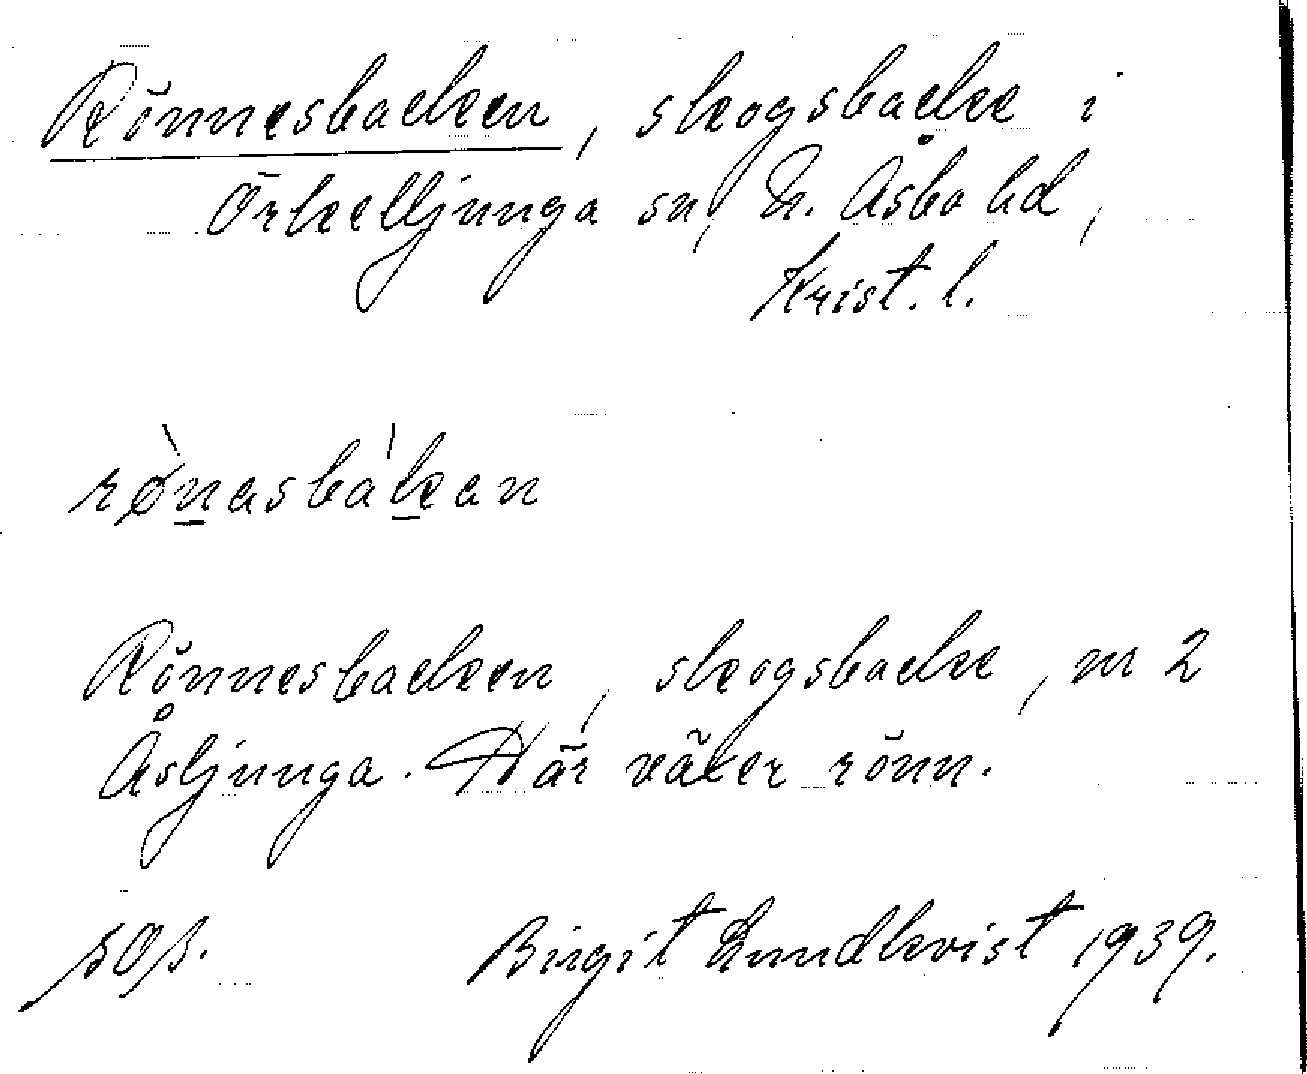 Rönnesbacken, skogsbacke i
Örkelljunga sn, N. Åsbo hd,
Krist. l.
rønasbakan
Rönnesbacken, skogsbacke, m 2
Åsljunga. Här växer rönn.
Birgit Lundkvist 1939.